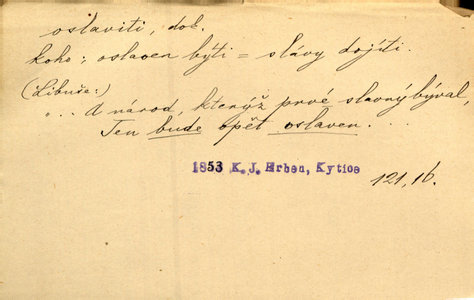 oslaviti, dok.
koho; oslaven býti = slávy dojíti.
(Libuše:)
"... A národ, kterýž prvé slavný býval
Ten bude opět oslaven. ..
1853 K.J. Erben, Kytice
121, 16.